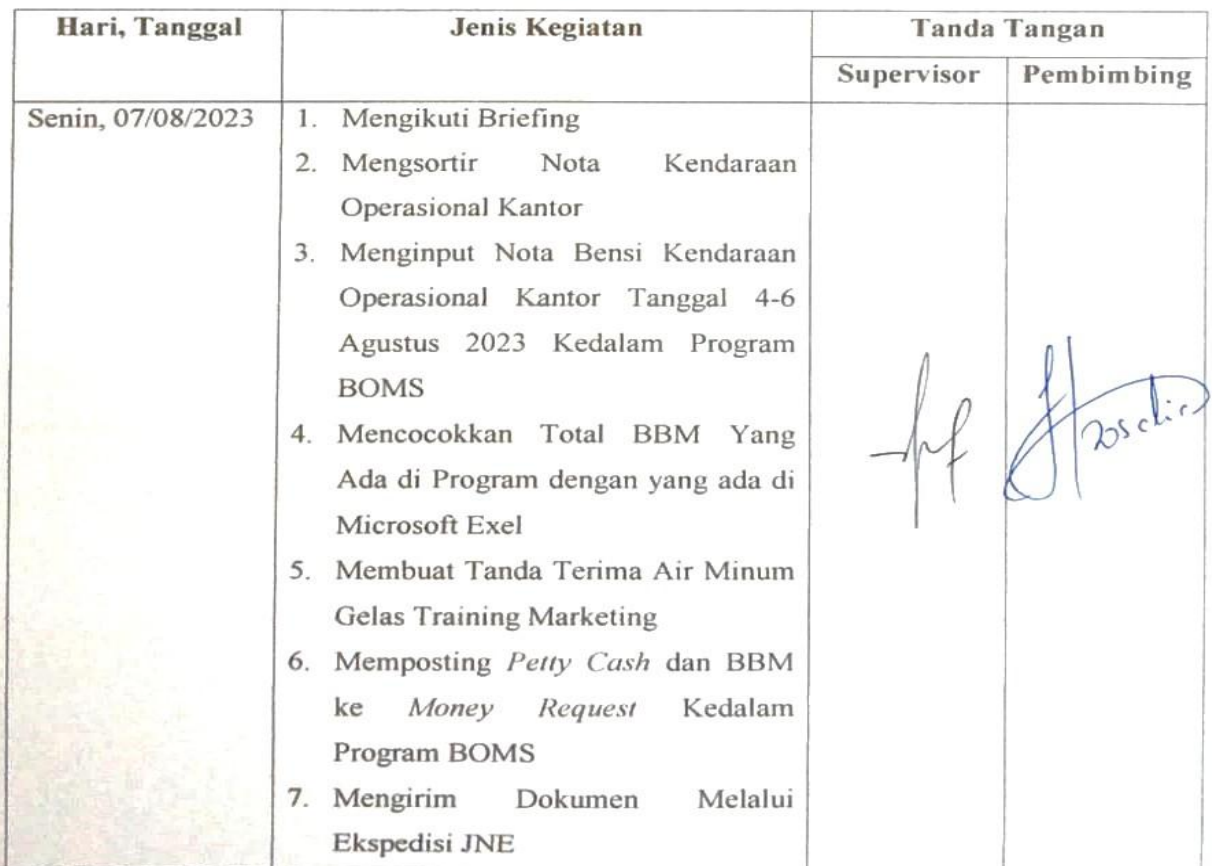 Hari, Tanggal
Jenis Kegiatan
Tanda Tangan
Supervisor
Pembimbing
Senin, 07/08/2023
1. Mengikuti Briefing
2. Mengsortir Nota Kendaraan
Operasional Kantor
3. Menginput Nota Bensi Kendaraan
Operasional Kantor Tanggal 4-6
Agustus 2023 Kedalam Program
BOMS
4. Mencocokkan Total BBM Yang
Ada di Program dengan yang ada di
Microsoft Exel
5. Membuat Tanda Terima Air Minum
Gelas Training Marketing
6. Memposting Petty Cash dan BBM
ke Money Request Kedalam
Program BOMS
7. Mengirim Dokumen Melalui
Ekspedisi JNE